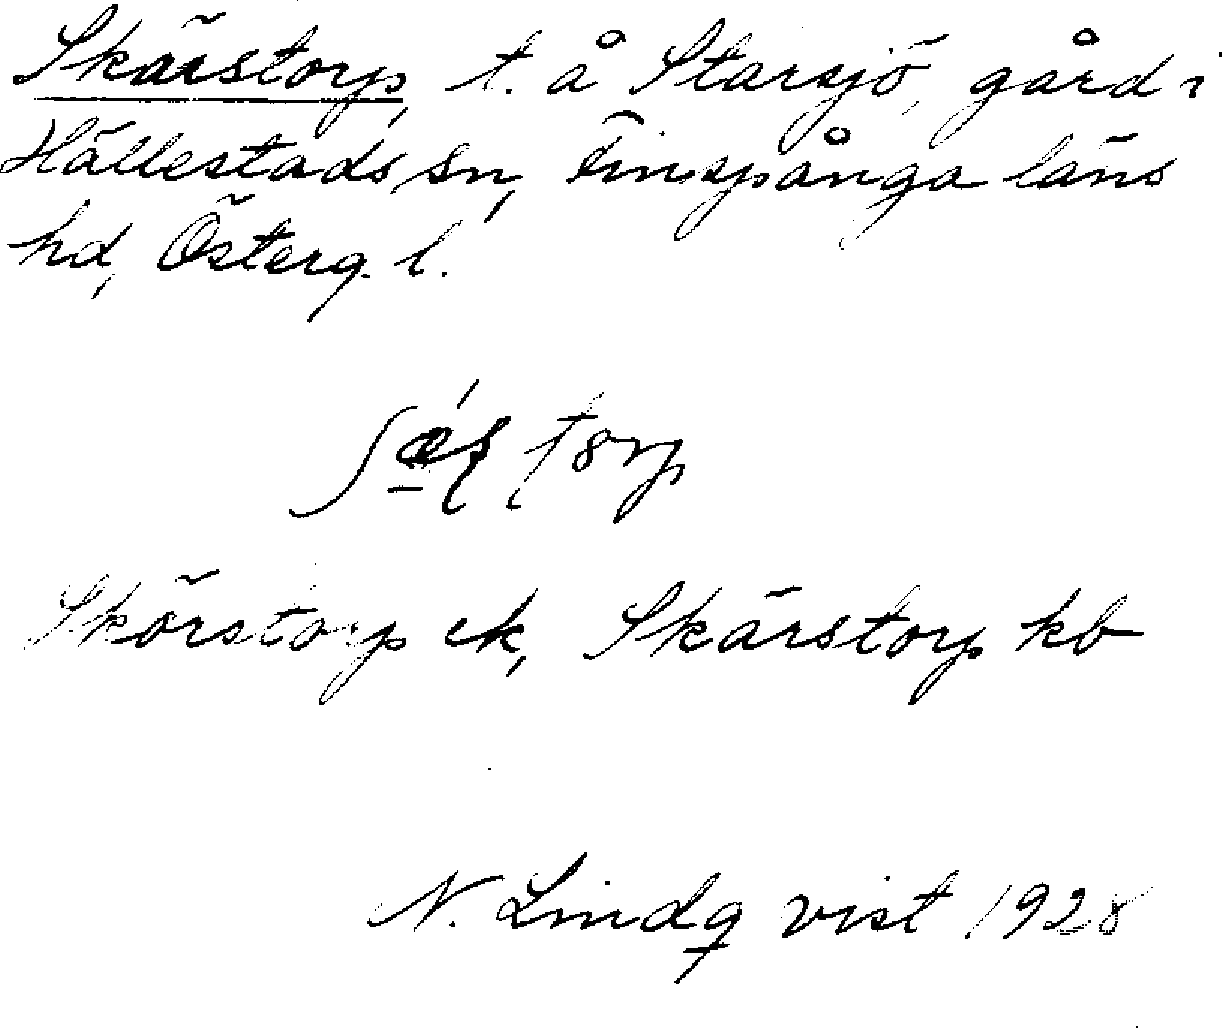 Skärstorp, t. å Starsjö, gård i
Hällestads sn, Finspånga läns
hd, Österg. l.
Skörstorp ek, Skärstorp kb
N. Lindqvist 1928